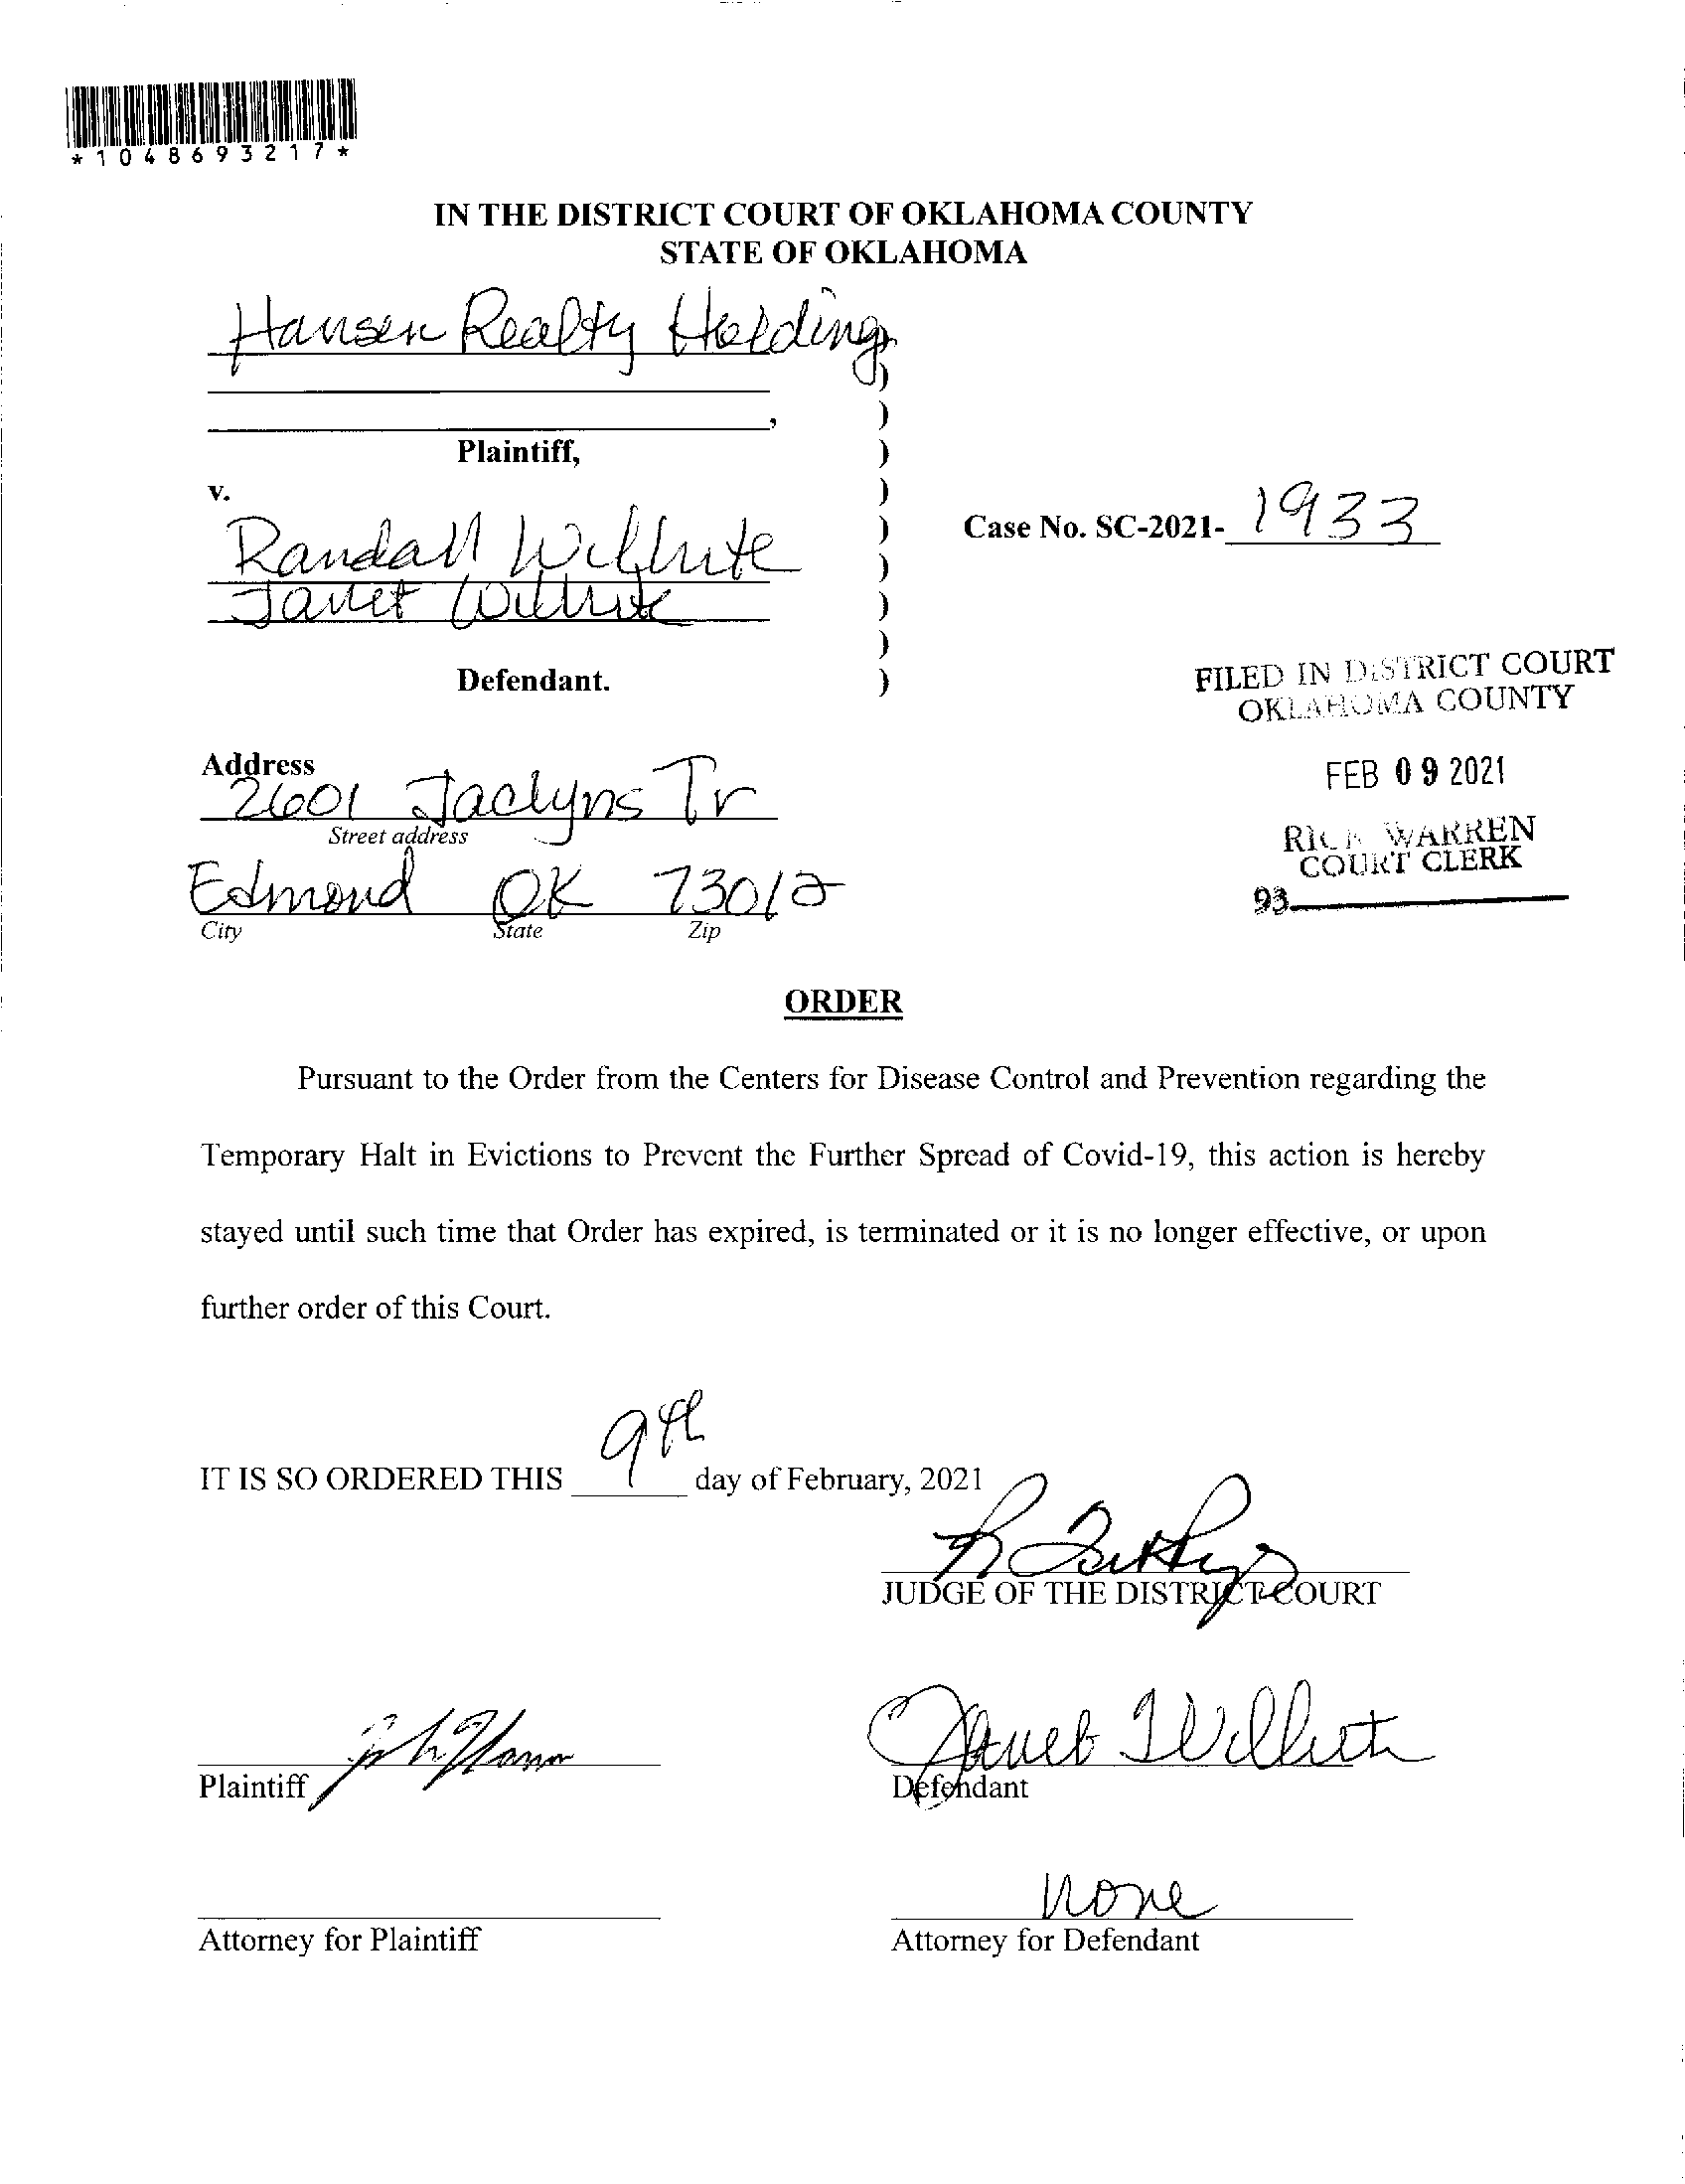 *1048693217*
IN THE DISTRICT COURT OF OKLAHOMA COUNTY
STATE OF OKLAHOMA
Hansen Realty Holdings
)
,
)
Plaintiff,
)
v.
)
Randall Wilhite
)
Case No. SC-2021- 1933
)
Janet Wilhite
)
)
Defendant.
)
FILED IN DISTRICT COURT
OKLAHOMA COUNTY
FEB 09 2021
RICK WARREN
COURT CLERK
93
Address
2601 Jaclyns Tr
Street address
Edmond OK 73012
City State Zip
ORDER
Pursuant to the Order from the Centers for Disease Control and Prevention regarding the
Temporary Halt in Evictions to Prevent the Further Spread of Covid-19, this action is hereby
stayed until such time that Order has expired, is terminated or it is no longer effective, or upon
further order of this Court.
IT IS SO ORDERED THIS 9th day of February, 2021
JUDGE OF THE DISTRICT COURT
Janet Wilhite
Plaintiff
Defendant
none
Attorney for Plaintiff
Attorney for Defendant